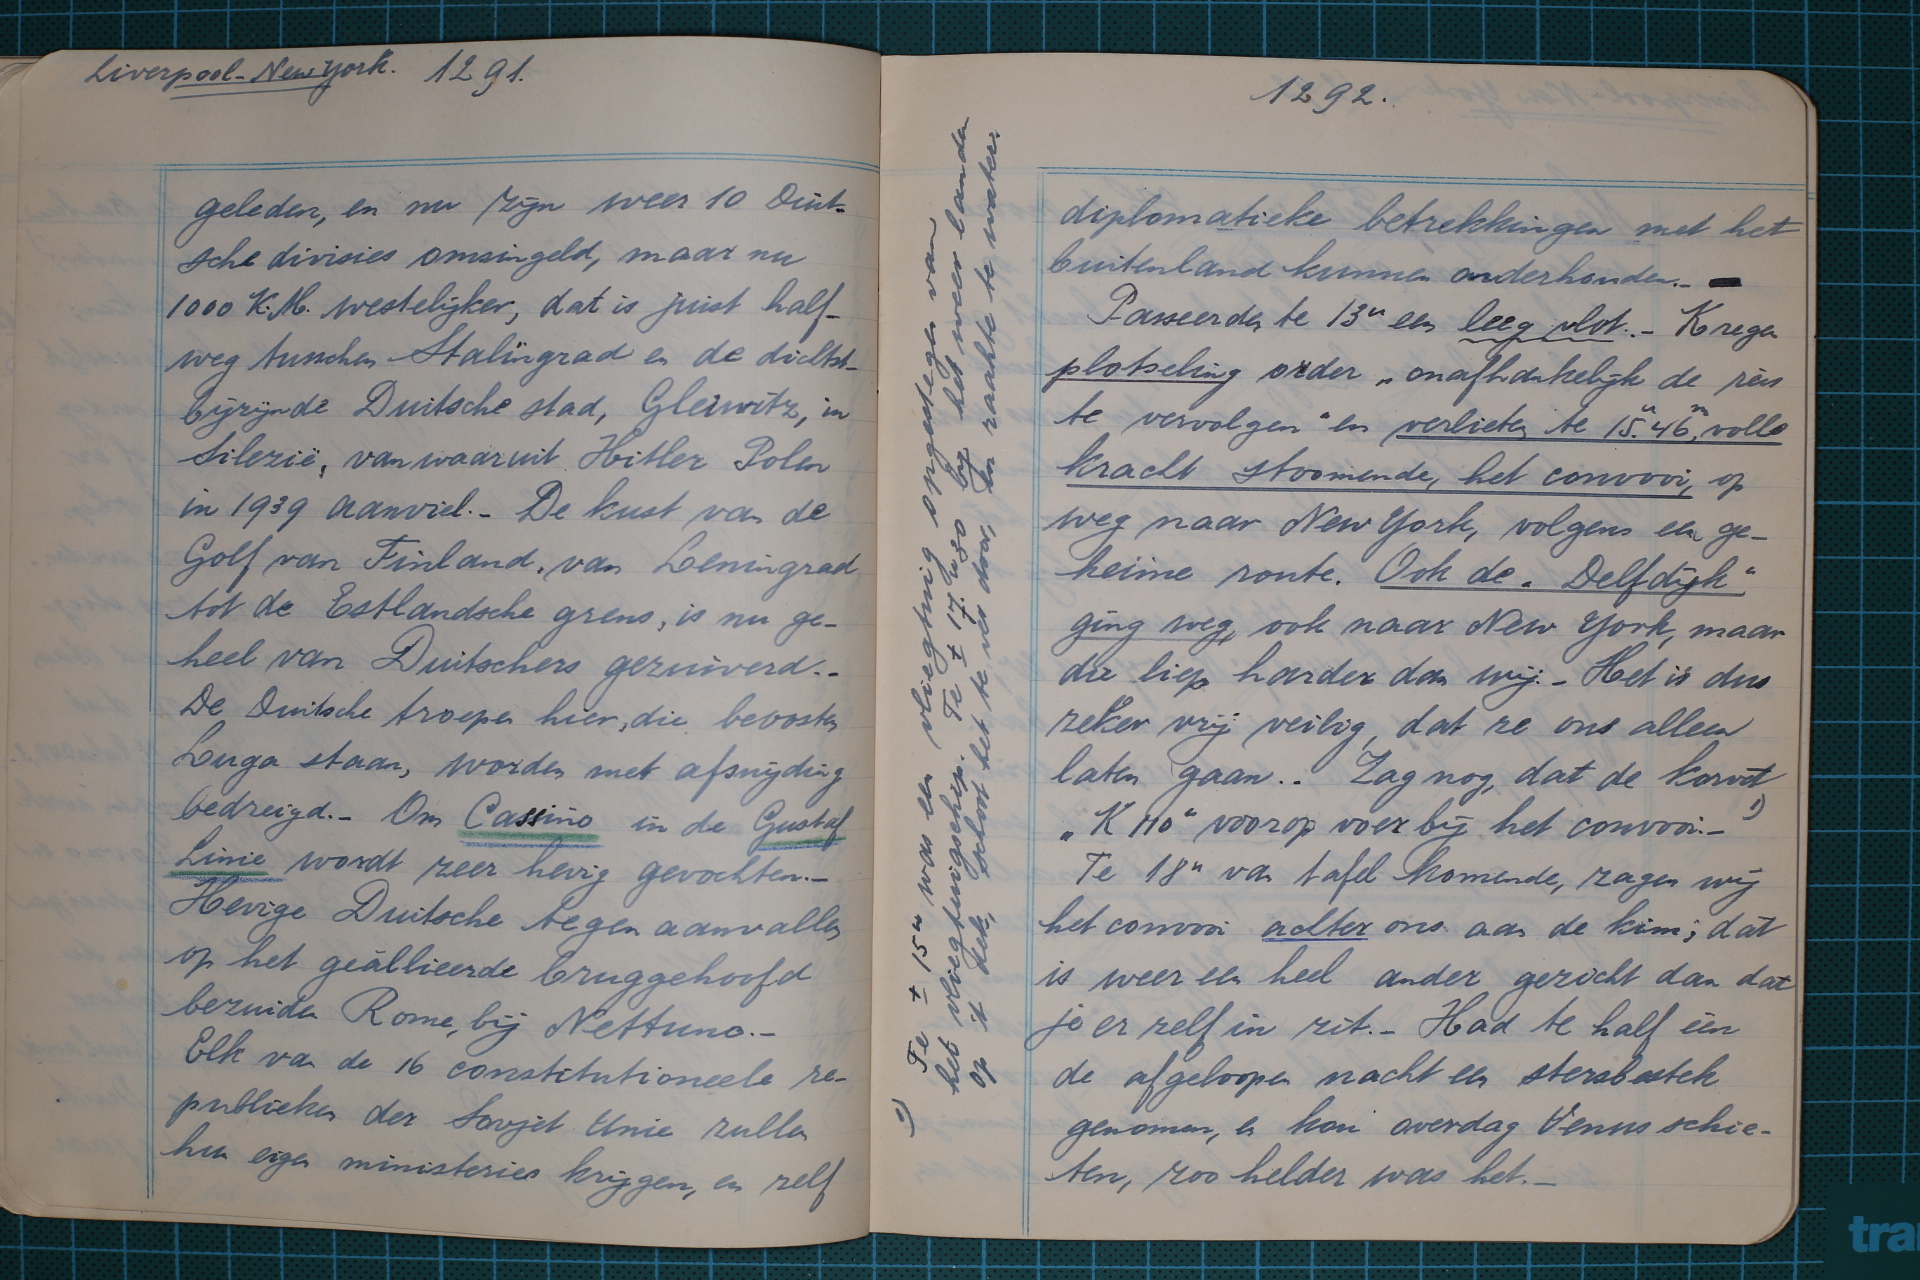 Liverpool-New York. 1291.
geleden, en nu zijn weer 10 Duit-
sche divisies omsingeld, maar nu
1000 K.M. westelijker, dat is juist half-
weg tusschen Stalingrad en de dichtst-
bijzijnde Duitsche stad, Gleiwitz, in
Silezië, van waaruit Hitler Polen
in 1939 aanviel.- De kust van de
Golf van Finland, van Leningrad
tot de Estlandsche grens, is nu ge-
heel van Duitschers gezuiverd.-
De Duitsche troepen hier, die beoosten
Luga staan, worden met afsnijding
bedreigd.- Om Cassino in de Gustaf
Linie wordt zeer hevig gevochten.-
Hevige Duitsche tegenaanvallen
op het geällieerde bruggehoofd
bezuiden Rome, bij Nettuno.-
Elk van de 16 constitutioneele re-
publieken der Sovjet Unie zullen
hun eigen ministeries krijgen, en zelf
1292.
diplomatieke betrekkingen met het
buitenland kunnen onderhouden.-
Passeerden te 13u een leeg vlot.- Kregen
plotseling order „onafhankelijk de reis
te vervolgen" en verlieten te 15u.46m, volle
kracht stoomende, het convooi, op
weg naar New York, volgens een ge-
heime route. Ook de „Delfdijk"
ging weg, ook naar New York, maar
die liep harder dan wij.- Het is dus
zeker vrij veilig, dat ze ons alleen
laten gaan.. Zag nog, dat de korvet
„K 110" voorop voer bij het convooi.- 1)
Te 18u van tafel komende, zagen wij
het convooi achter ons aan de kim; dat
is weer een heel ander gezicht dan dat
je er zelf in zit.- Had te half één
de afgeloopen nacht een sterrebestek
genomen, en kon overdag Venus schie-
ten, zoo helder was het.-
1) Te ± 15u was een vliegtuig opgestegen van
het vliegtuigschip. Te ± 17.u30 bij het weer landen
op 't dek, schoot het te ver door, en raakte te water.